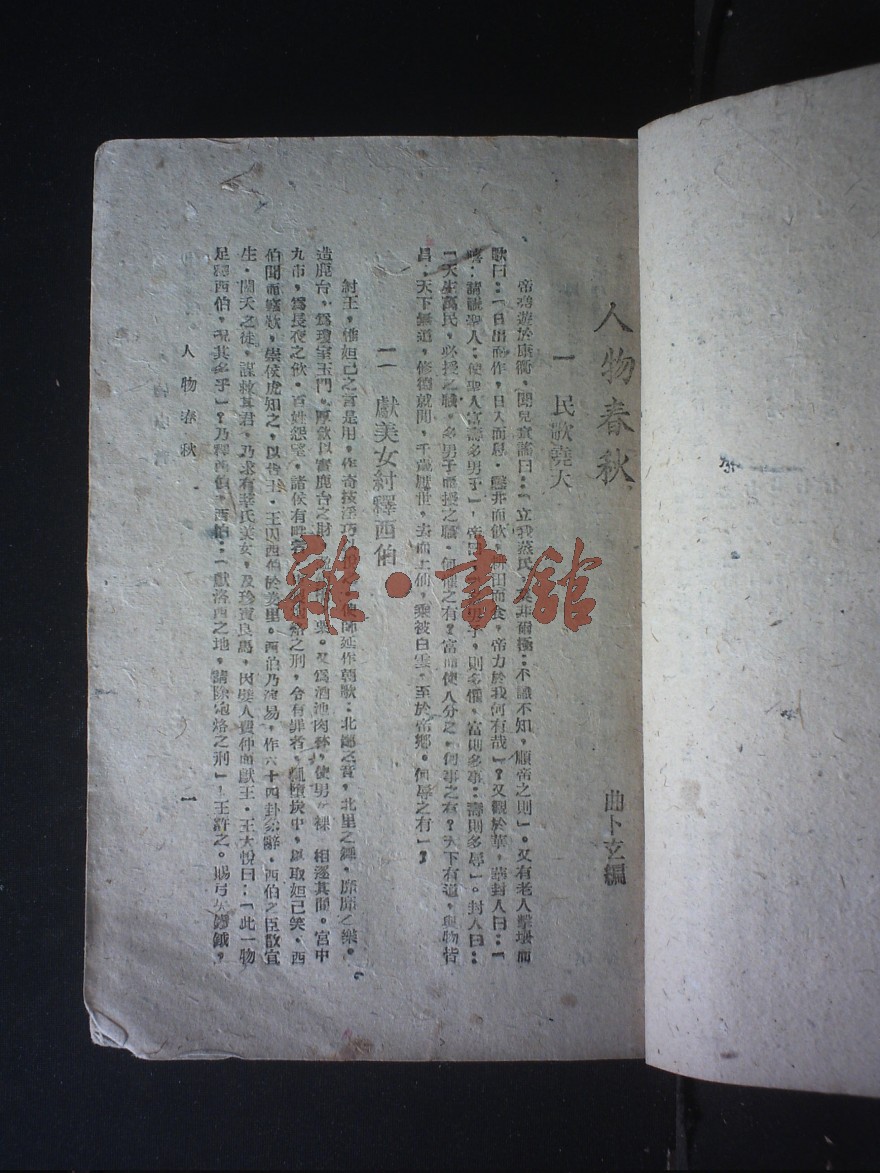 人物春秋
曲卜玄編
一　民歌堯大
帝堯遊於康衢，聞兒童謠曰：「立我蒸民，莫非爾極：不識不知，順帝之則」。又有老人擊壤而
歌曰：「日出而作，日入而息，鑿井而飲，耕田而食，帝力於我何有哉」？又觀於華，華封人曰：「
嘻：請祝聖人：使聖人富壽多男子」，帝曰男子，則多懼，富則多事：壽則多辱」。封人曰：
「天生萬民，必授之職，多男子而授之職．何懼之有？富而使人分之，何事之有？天下有道，與物皆
昌：天下無道，修德就閒，千歲厭世，去而上仙，乘彼白雲．至於帝鄉。何辱之有」？
二　獻美女紂釋西伯
紂王，惟妲己之言是用，作奇技淫巧以師延作朝歌：北鄙之音，北里之舞，靡靡之樂。
造鹿台，為瓊室玉門，厚歛以實鹿台之財粟。又為酒池肉林，使男女裸　相逐其間。宮中
九市，為長夜之飲．百姓怨望，諸侯有畔烙之刑，令有罪者，墮炭中，以取妲己笑．西
伯聞而竊歎，崇侯虎知之，以告王．王囚西伯於羑里．西伯乃演易，作六十四卦彖辭．西伯之臣散宜
生．閎夭之徒，謀救其君，乃求有莘氏美女，及珍寶良馬，因嬖人費仲而獻王．王大悅曰：「此一物
足釋西伯，況其多乎」？乃釋西伯，西伯：「獻洛西之地，請除炮烙之刑」，王許之。賜弓矢鈇鉞，
人物春秋
一
雜·書館